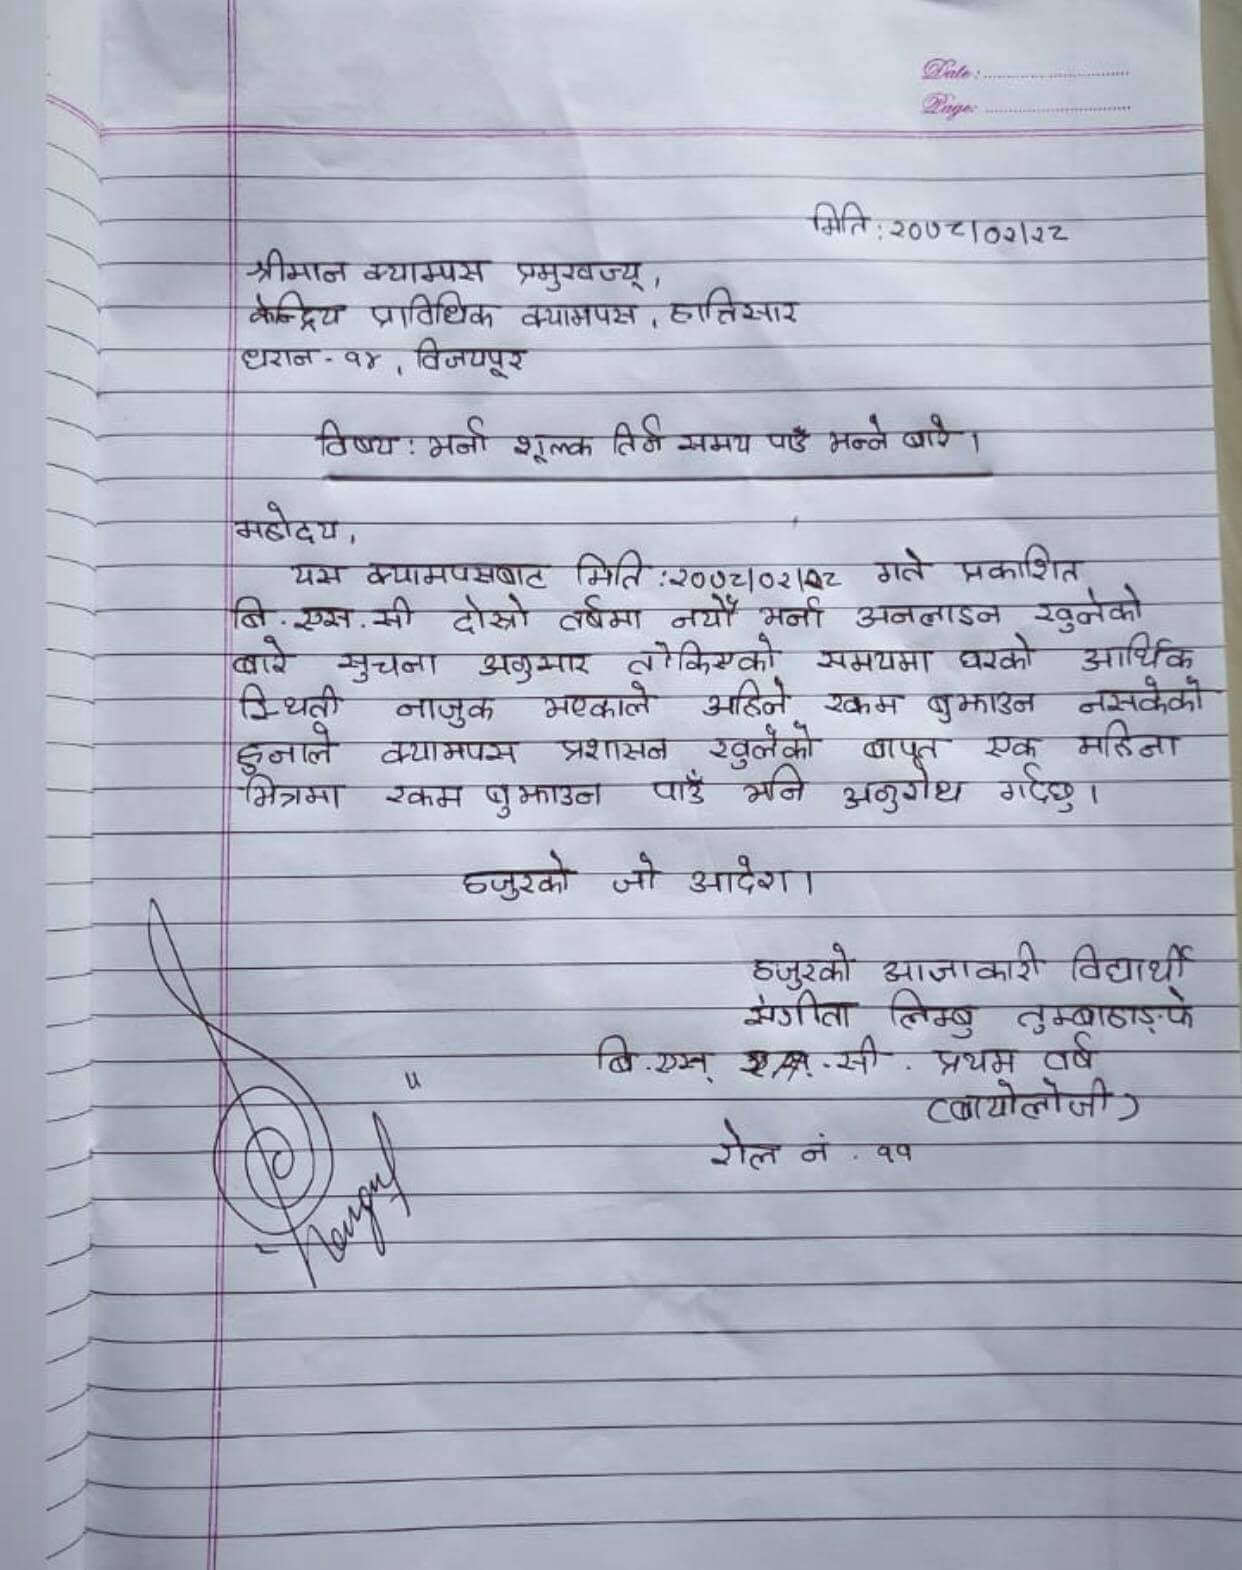 Date :
Page:
मिति : २०७८/०२/२८
श्रीमान क्याम्पस प्रमुखज्यू,
केन्द्रिय प्राविधिक क्यामपस, हात्तिसार
धरान - १४, विजयपूर
विषय : भर्ना शूल्क तिर्न समय पाउँ भन्ने बारे ।
महोदय,
यस क्यामपसबाट मिति : २०७८/०२/२८ गते प्रकाशित
बि . एस . सी दोस्रो वर्षमा नयाँ भर्ना अनलाइन खुलेको
बारे सुचना अनुसार तोकिएको समयमा घरको आर्थिक
स्थिती नाजुक भएकाले अहिले रकम बुझाउन नसकेको
हुनाले क्यामपस प्रशासन खुलेको बापत एक महिना
भित्रमा रकम बुझाउन पाउँ भनि अनुरोध गर्दछु ।
हजुरको जो आदेश ।
हजुरको आज्ञाकारी विद्यार्थी
संगीता लिम्बु तुम्बाहाङ्फे
बि . एस् . सी . प्रथम वर्ष
(बायोलोजी)
रोल नं . ११